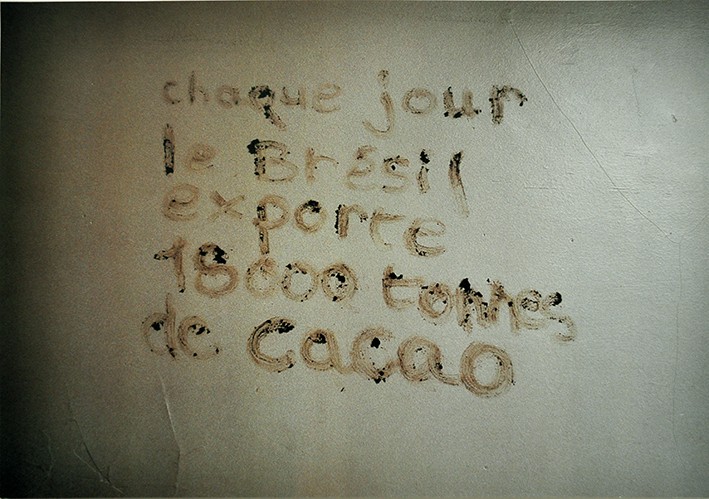 chaque jour
le Brésil
exporte
18000 tonnes
de cacao